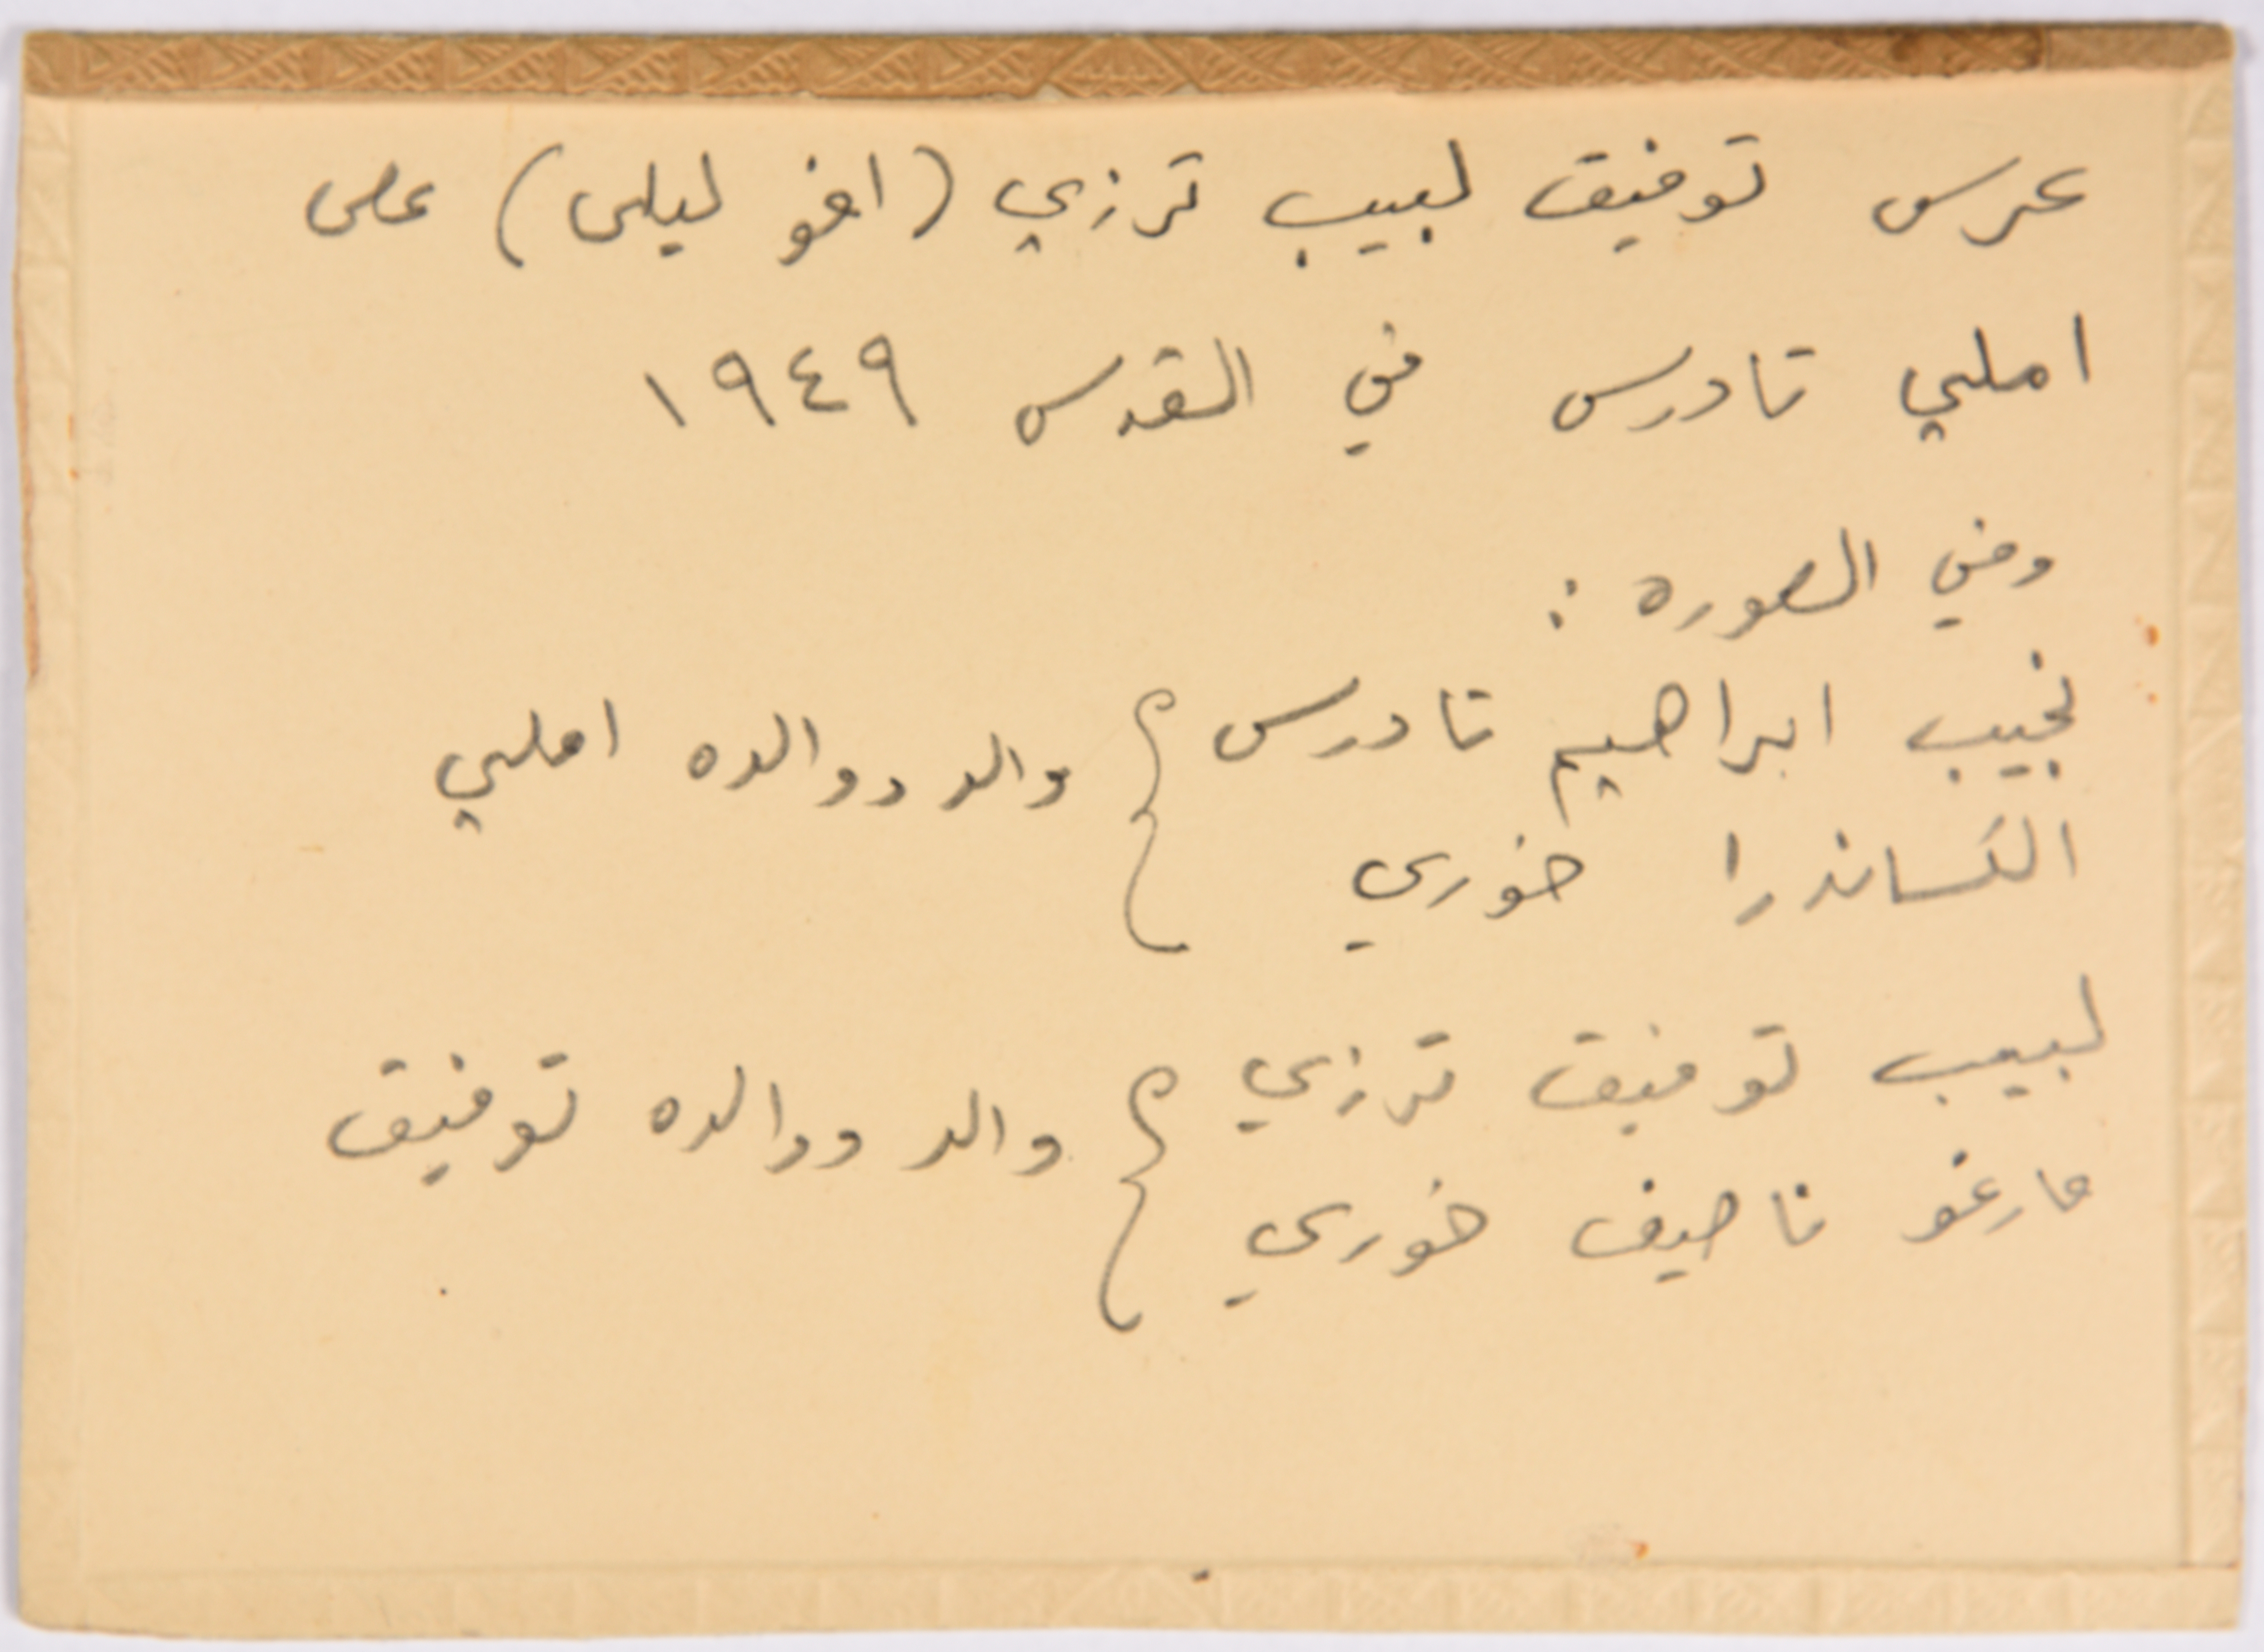 عرس توفيق لبيب ترزي (اخو ليلى) على
املي تادرس في القدس ١٩٤٩
وفي الصوره :
نجيب ابراهيم تادرس } والد ووالده املي
الكساندرا خوري
لبيب توفيق ترزي } والد ووالده توفيق
مارغو ناصيف خوري